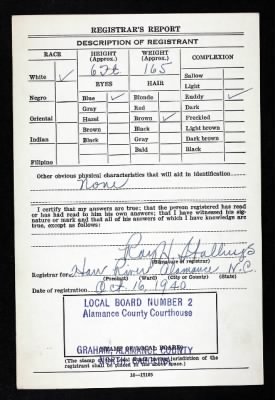 REGISTRAR'S REPORT
DESCRIPTION OF REGISTRANT
RACE
HEIGHT (Approx.)
WEIGHT (Approx.)
COMPLEXION
White ✓
6 ft.
165
Sallow
Light
EYES
HAIR
Negro
Blue ✓
Blonde
Ruddy ✓
Gray
Red
Dark
Oriental
Hazel
Brown ✓
Freckled
Brown
Black
Light brown
Indian
Black
Gray
Dark brown
Bald
Black
Filipino
Other obvious physical characteristics that will aid in identification
None
I certify that my answers are true; that the person registered has read
or has had read to him his own answers; that I have witnessed his sig-
nature or mark and that all of his answers of which I have knowledge are
true, except as follows:
Ray H. Stallings
(Signature of registrar)
Registrar for Haw River Alamance N.C.
(Precinct) (Ward) (City or County) (State)
Date of registration Oct. 16, 1940
LOCAL BOARD NUMBER 2
Alamance County Courthouse
GRAHAM, ALAMANCE COUNTY
NORTH CAROLINA
(STAMP OF LOCAL BOARD)
(The stamp of the local board having jurisdiction of the
registrant shall be placed in the above space.)